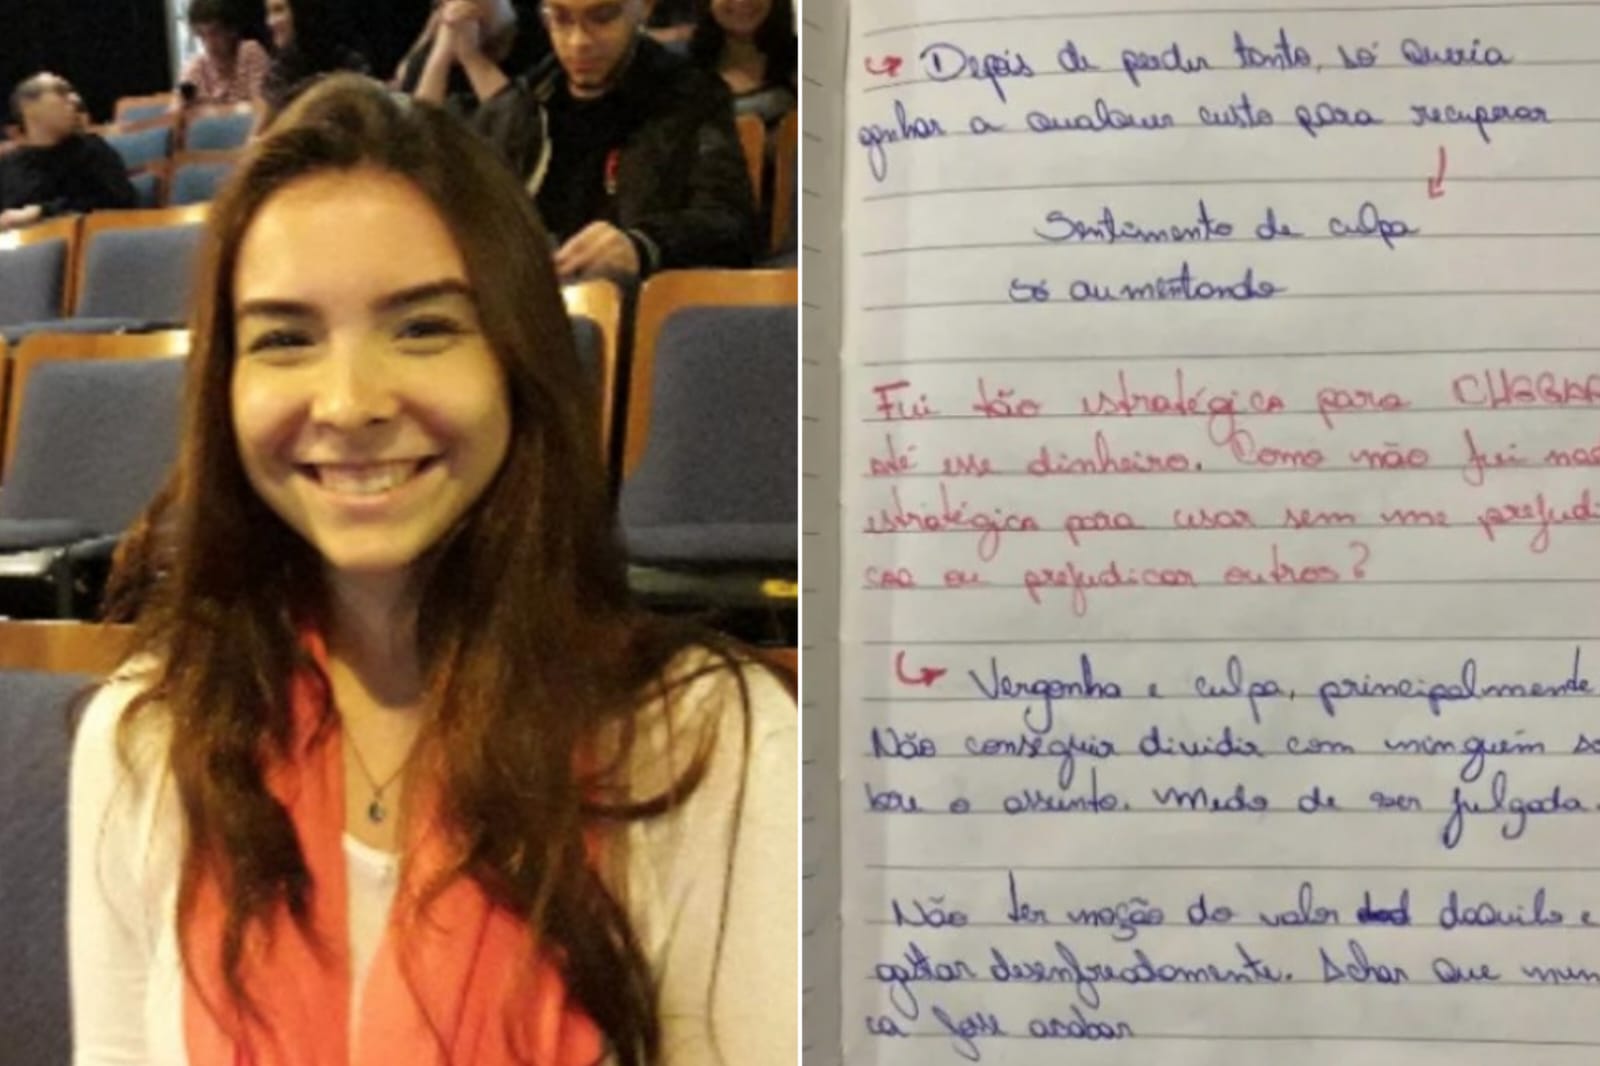 Depois de perder tanto, só queria
ganhar a qualquer custo para recuperar
Sentimento de culpa
só aumentando
Fui tão estratégica para CHEGAR
até esse dinheiro. Como não fui
estratégica para usar sem me prejudi
car ou prejudicar outros?
Vergonha e culpa, principalmente
Não conseguia dividir com ninguém so
bre o assunto. Medo de ser julgada.
Não ter noção do valor daquilo e
gastar desenfreadamente. Achar que nun
ca fosse acabar